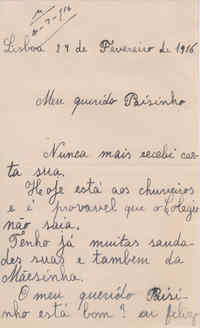 Lisboa 27 de Fevereiro de 1916
Meu querido Bisinho
Nunca mais recebi car-
ta sua.
Hoje está aos chuveiros
e é provavel que o Colegio
não saia.
Tenho já muitas sauda-
des suas e tambem da
Mãesinha.
O meu querido Bisi-
nho está bom? eu feliz